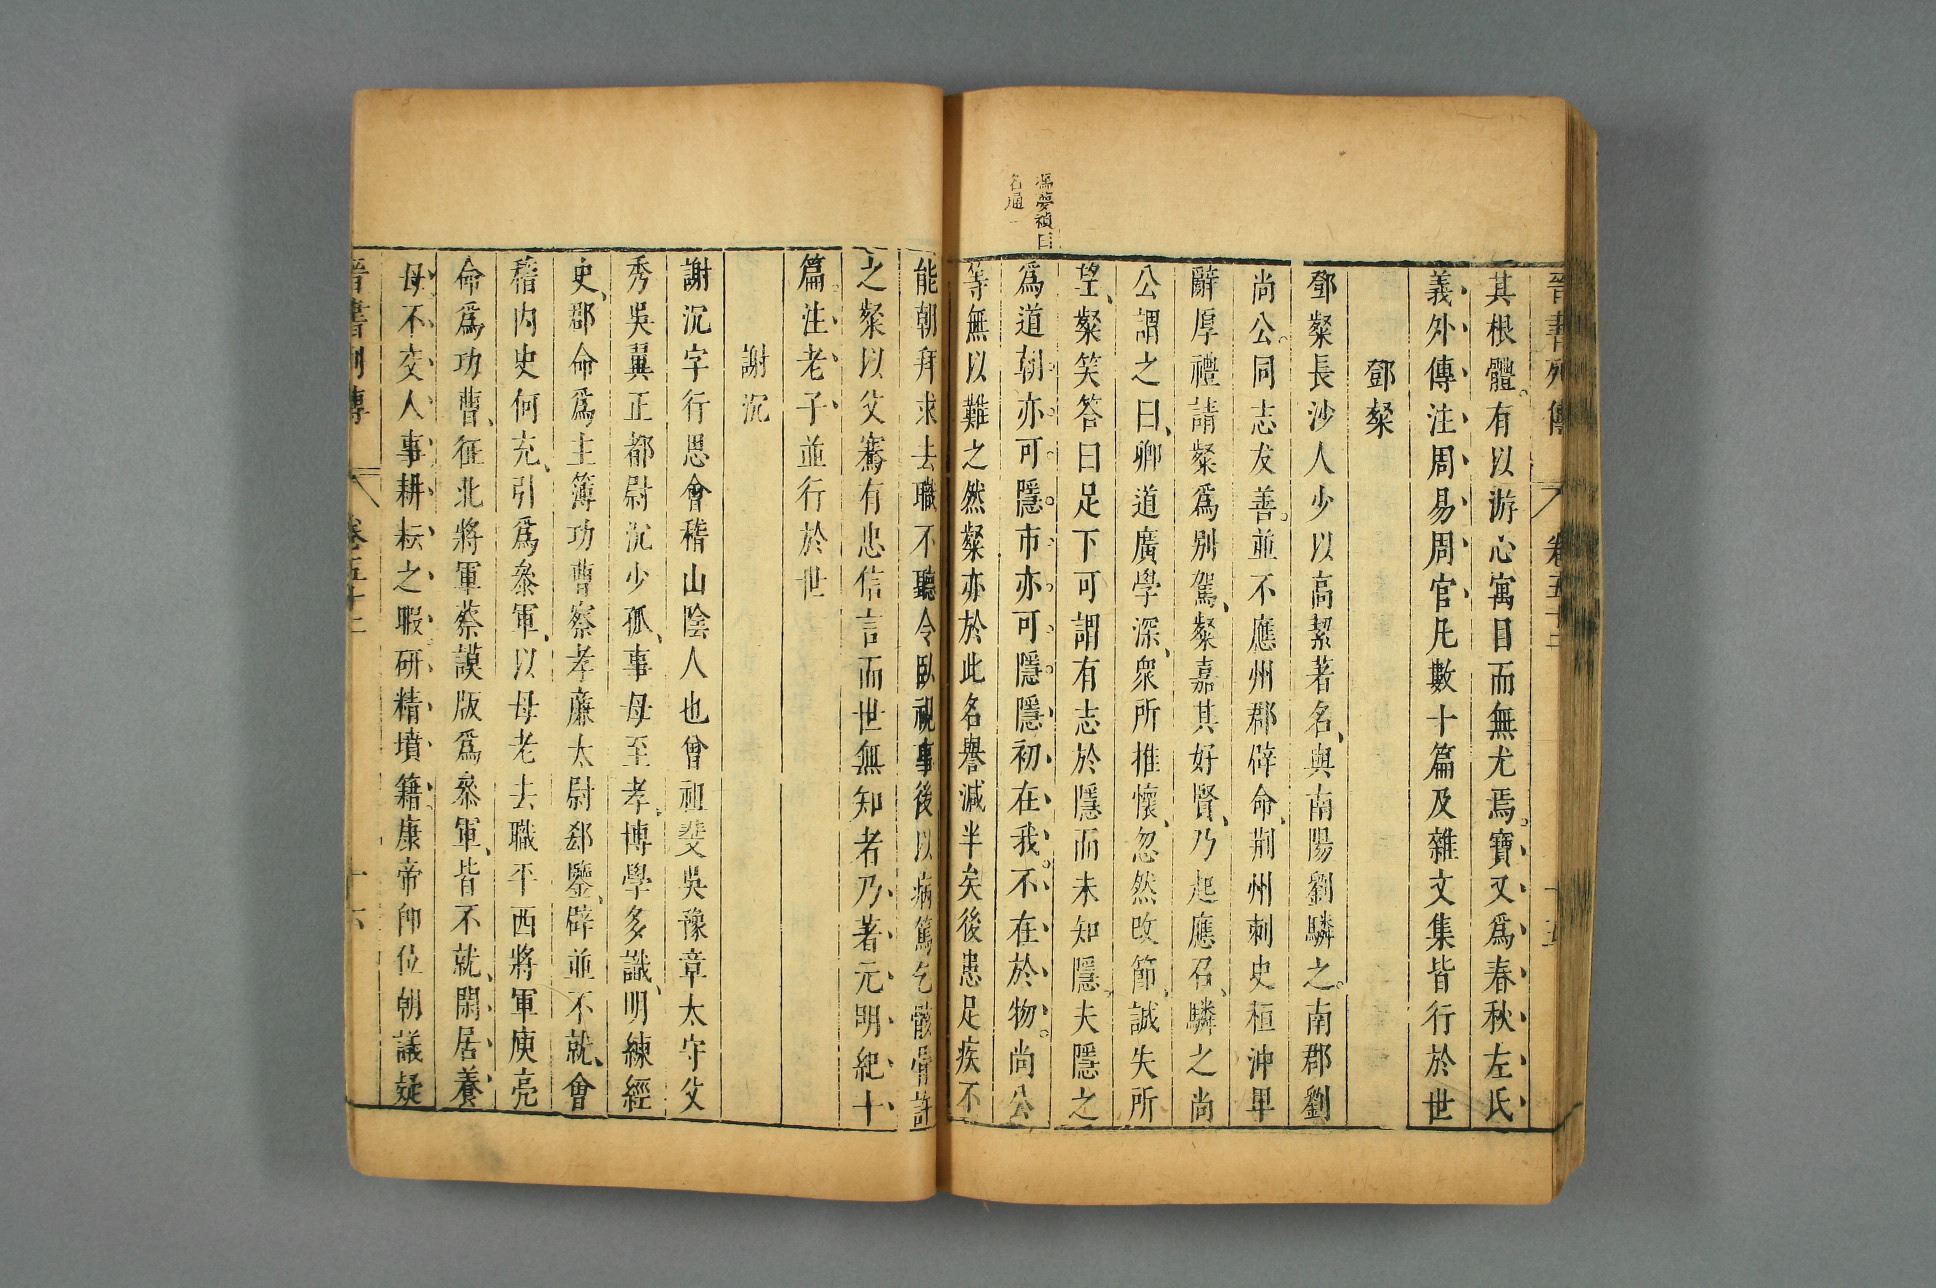 晉書列傳 卷五十二 十五
其根體有以游心寓目而無尤焉寶又爲春秋左氏
義外傳注周易周官凡數十篇及雜文集皆行於世
鄧粲
鄧粲長沙人少以高絜著名與南陽劉驎之南郡劉
尚公同志友善並不應州郡辟命荆州刺史桓沖卑
辭厚禮請粲爲別駕粲嘉其好賢乃起應召驎之尚
公謂之曰卿道廣學深衆所推懷忽然改節誠失所
望粲笑答曰足下可謂有志於隱而未知隱夫隱之
馮夢禎曰
名通
爲道朝亦可隱市亦可隱隱初在我不在於物尚公
等無以難之然粲亦於此名譽減半矣後患足疾不
能朝拜求去職不聽令臥視事後以病篤乞骸骨許
之粲以父騫有忠信言而世無知者乃著元明紀十
篇注老子並行於世
謝沉
謝沉字行思會稽山陰人也曾祖斐吳豫章太守父
秀吳翼正都尉沉少孤事母至孝博學多識明練經
史郡命爲主簿功曹察孝廉太尉郄鑒辟並不就會
稽內史何充引爲叅軍以母老去職平西將軍庾亮
命爲功曹征北將軍蔡謨版爲叅軍皆不就閑居養
母不交人事耕耘之暇研精墳籍康帝卽位朝議疑
晉書列傳 卷五十二 十六